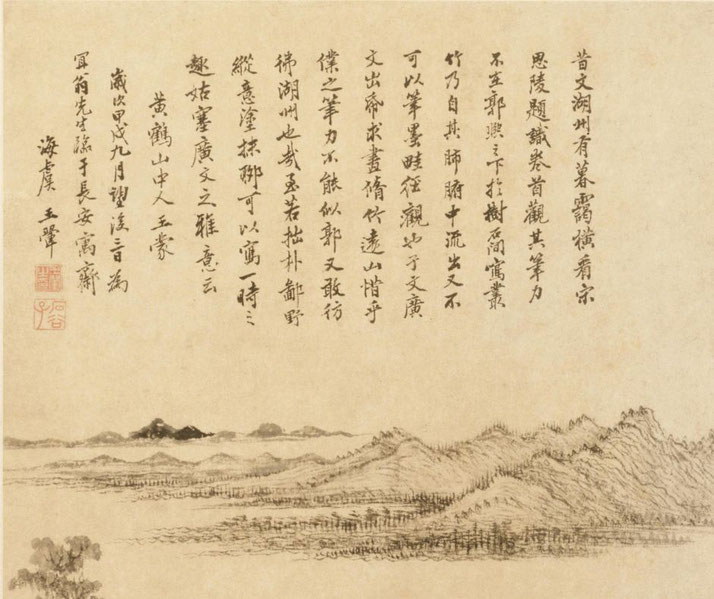 昔文湖州有暮靄橫看宋
思陵題識卷首觀其筆力
不在郭熙之下於樹石間寫叢
竹乃自其肺腑中流出又不
可以筆墨畦徑觀也子文廣
文出帋求畫脩竹遠山惜乎
僕之筆力不能似郭又敢彷
彿湖州也哉至若拙朴鄙野
縱意塗抹聊可以寫一時之
趣姑塞廣文之雅意云
黃鶴山中人王蒙
歲次甲戌九月望後三日為
冝翁先生臨于長安寓齋
海虞王翬
石谷子